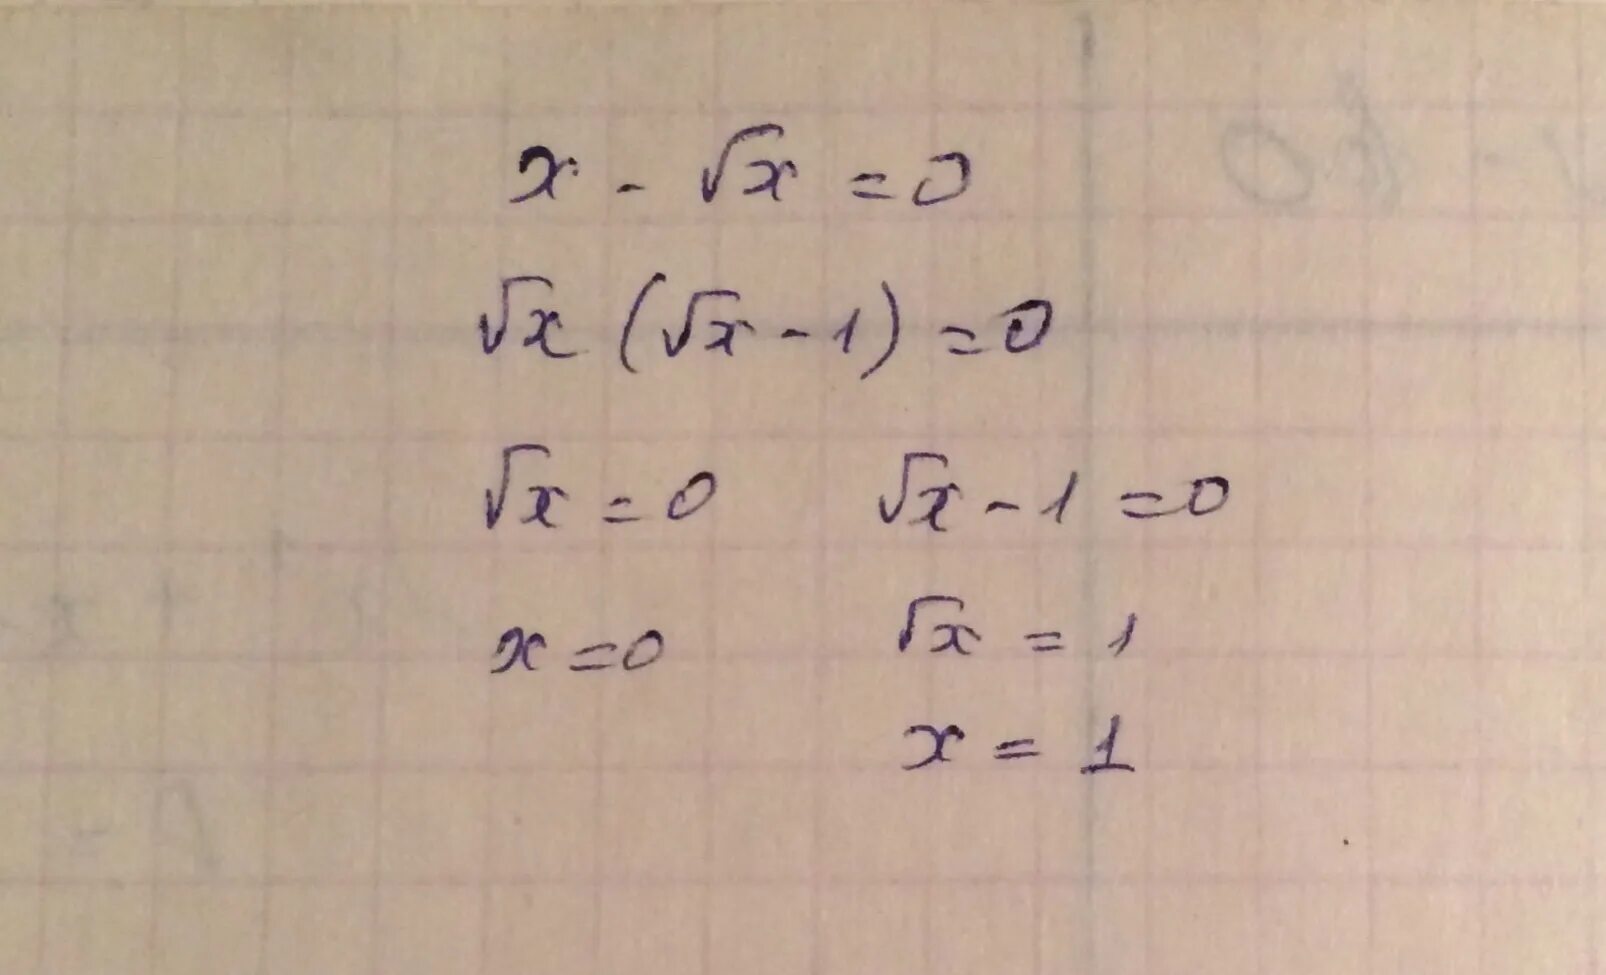 x - √x = 0
√x (√x - 1) = 0
√x = 0 √x - 1 = 0
x = 0 √x = 1
x = 1